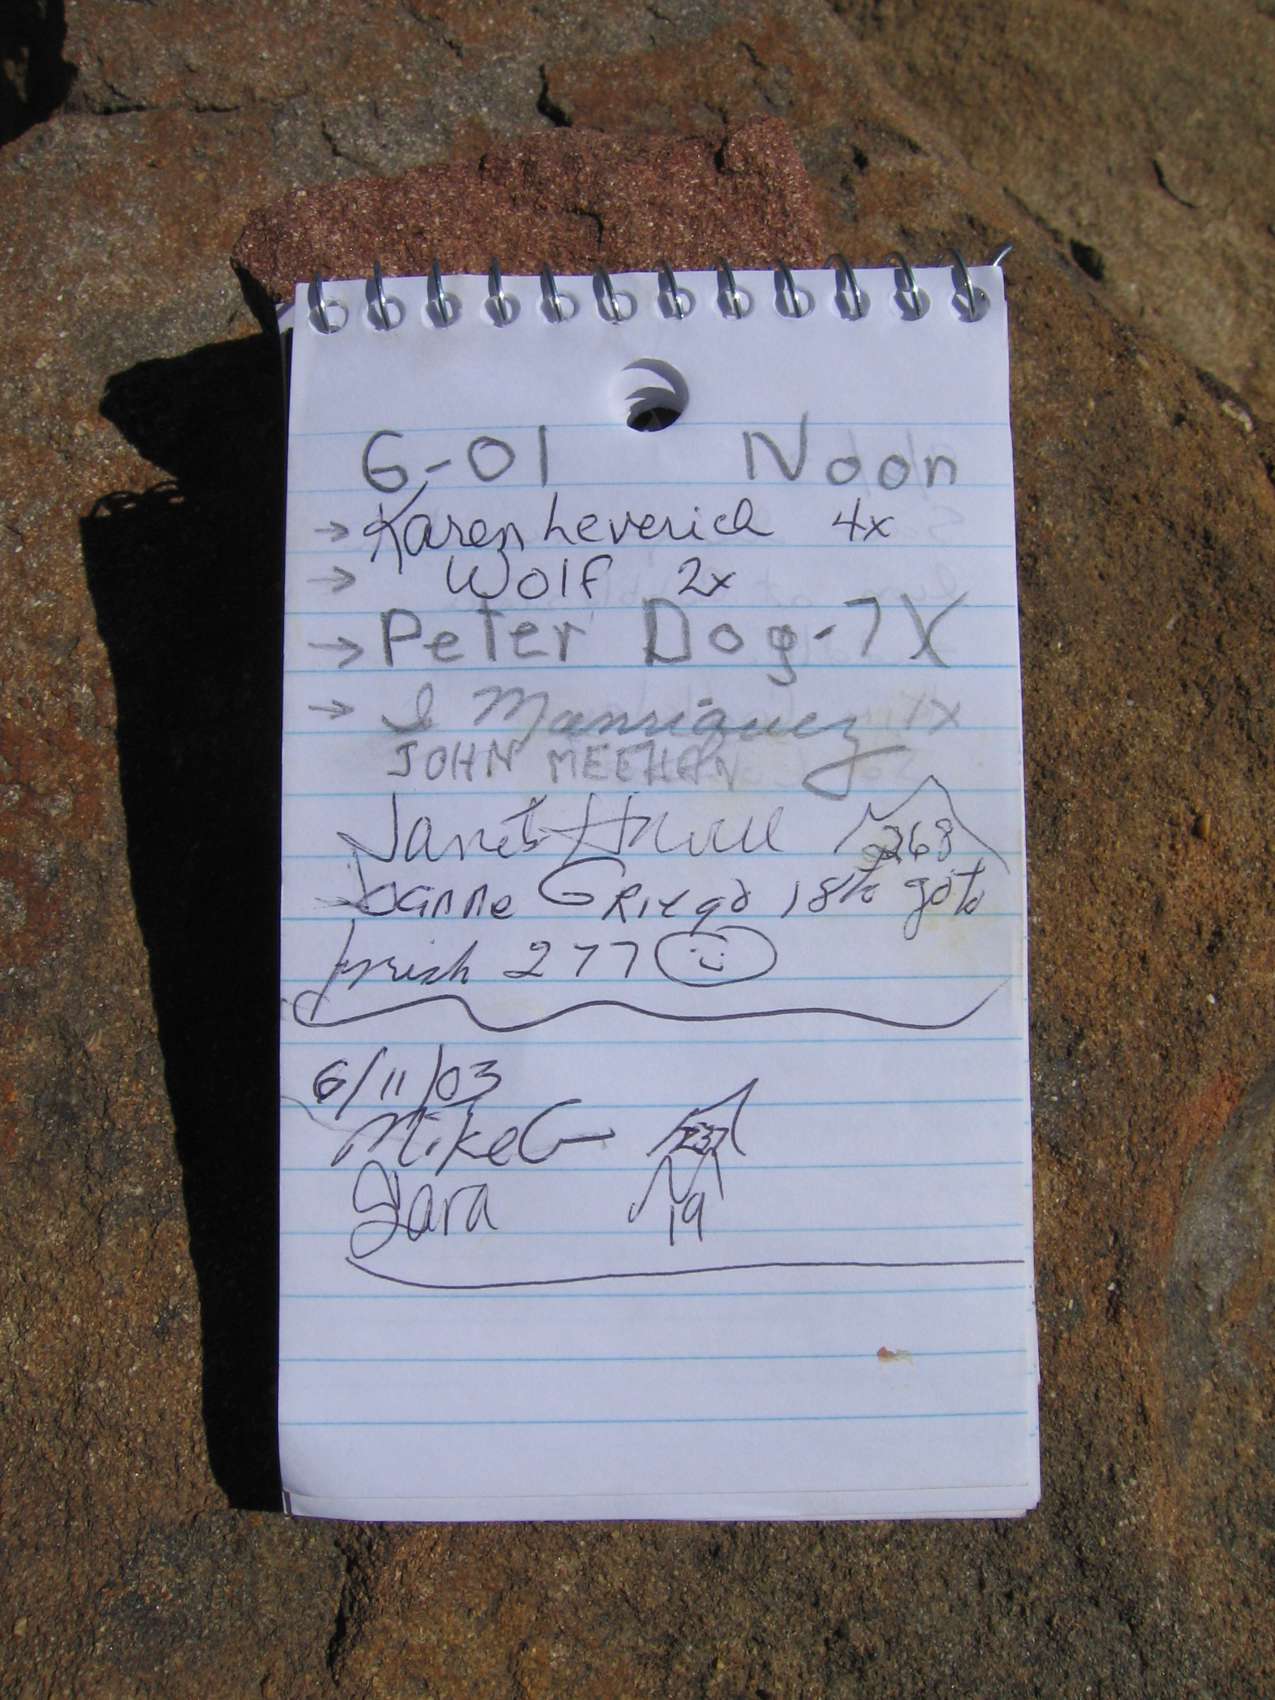 6-01 Noon
→ Karen Leverich 4x
→ Wolf 2x
→ Peter Dog - 7X
→ I Manriquez 1x
JOHN MEEHAN
Janet 268
Joanne Griego 18 to go to
finish 277
6/11/03
Mike G 237
Sara 19